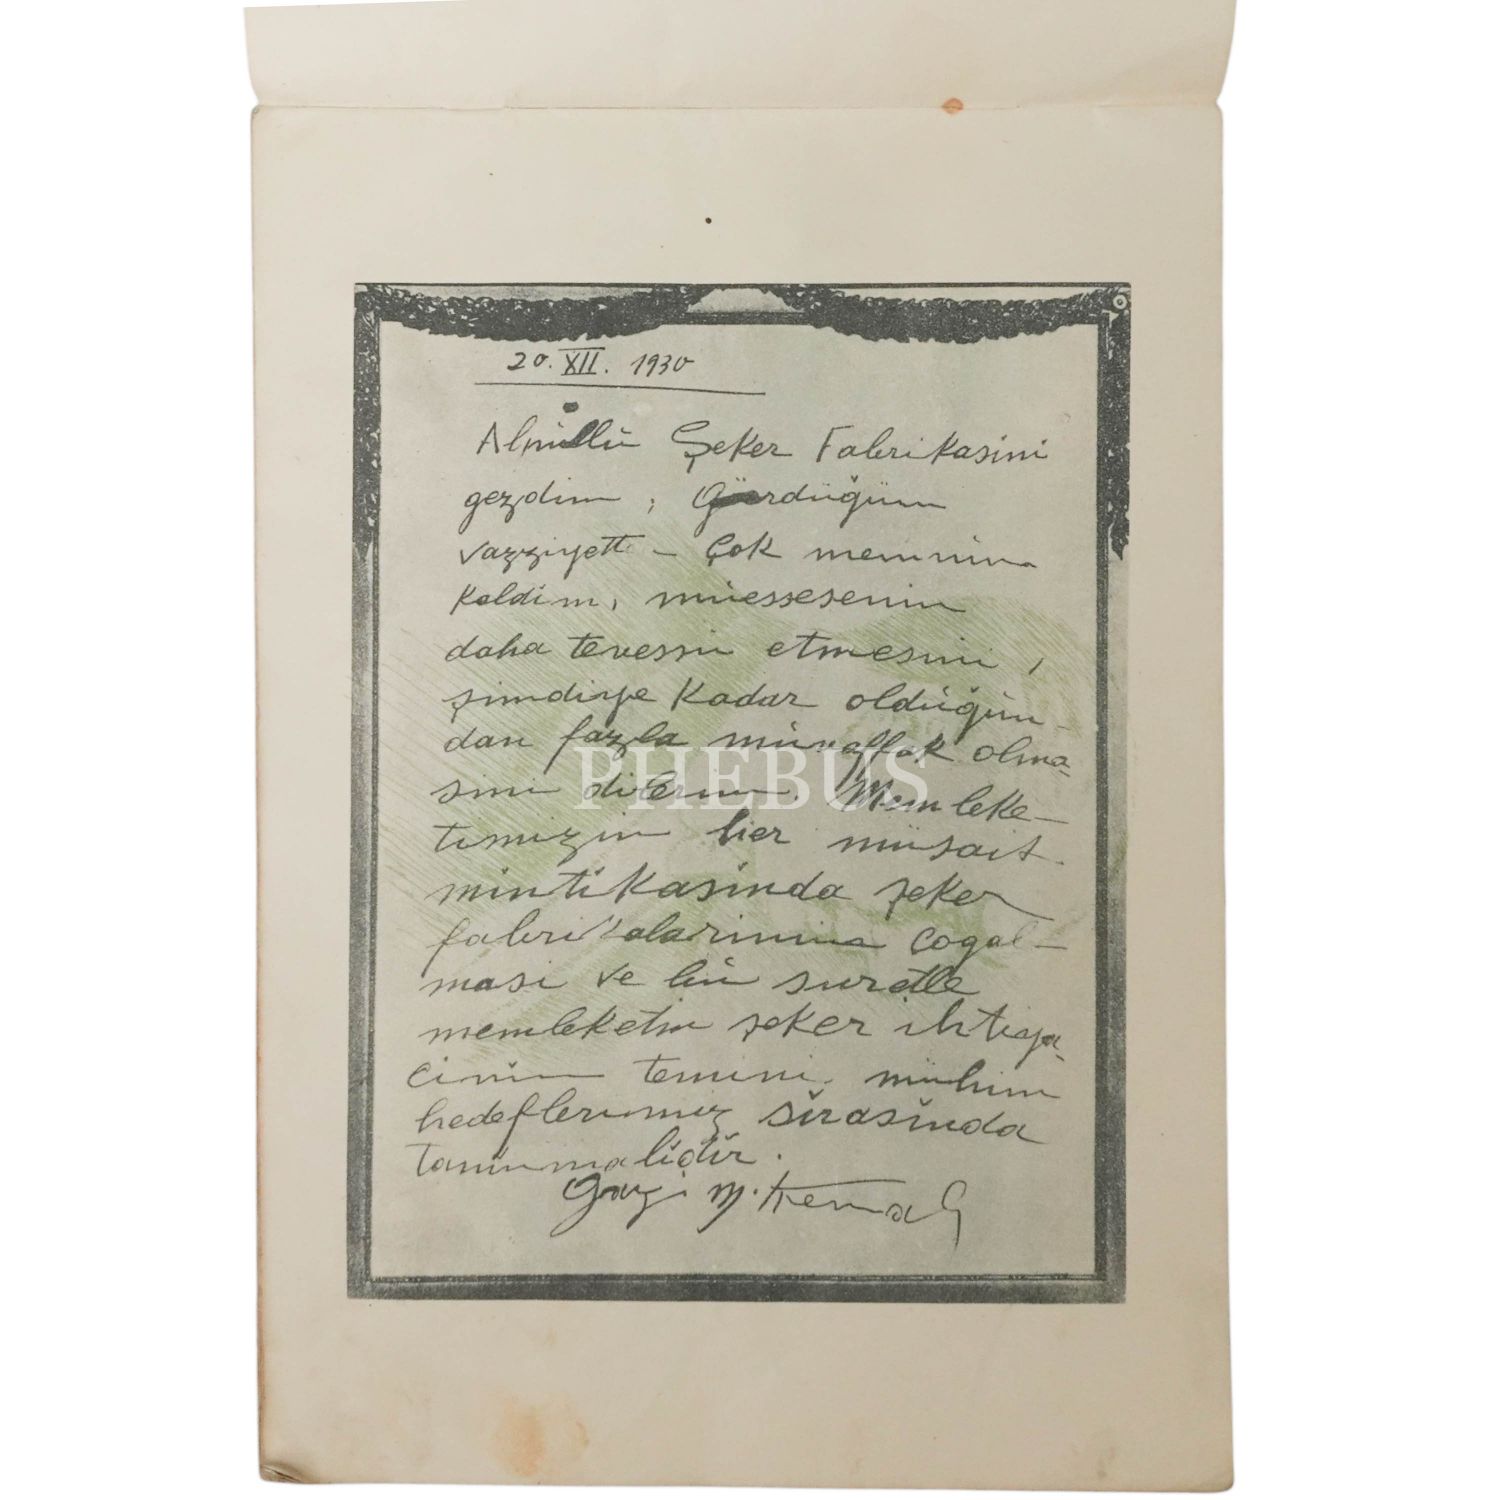 20. XII. 1930
Alpüllü Şeker Fabrikasini
gezdim; Gördüğüm
vazziyette çok memnun
kaldim, müessesenin
daha tevessü etmesini,
şimdiye kadar olduğun-
dan fazla müvaffak olma-
sini dilerim. Memleke-
timizin her müsait
mintikasinda şeker
fabrikalarinin çogal-
masi ve bu suretle
memleketin şeker ihtiya-
cinin temini, mühim
hedeflerimiz sirasinda
taninmalidir.
Gazi M. Kemal
PHEBUS